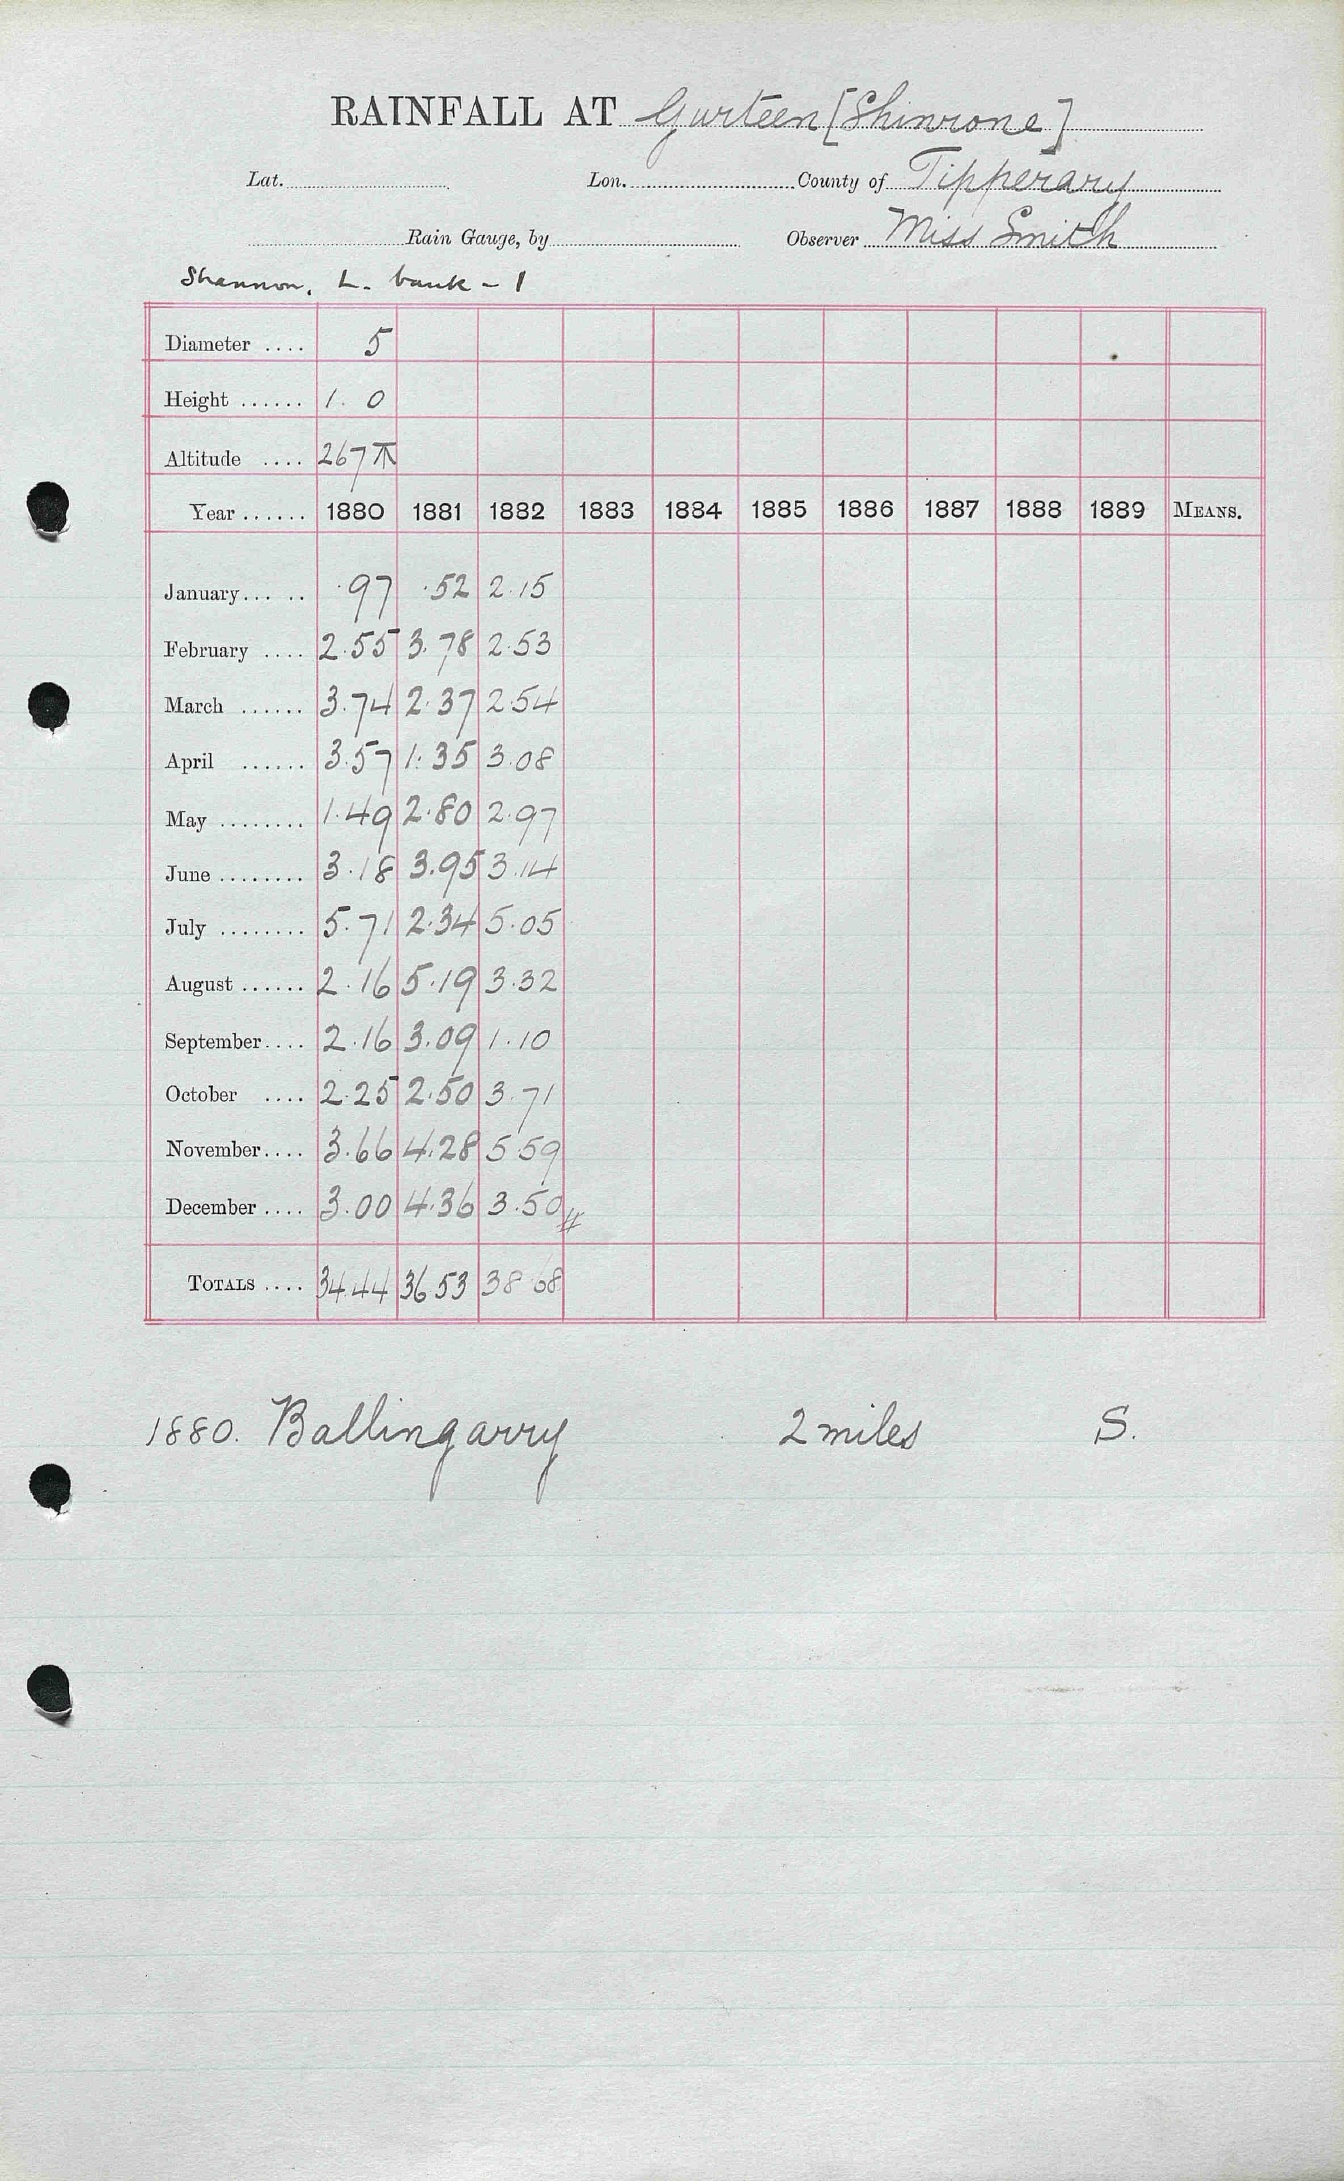 RAINFALL AT Gurteen [Shinrone]
Lat. Lon. County of Tipperary
Rain Gauge, by Observer Miss Smith
Shannon. L. bank - 1
Diameter .... 5
Height ...... 1. 0
Altitude .... 267
Year ...... 1880 1881 1882 1883 1884 1885 1886 1887 1888 1889 MEANS.
January... .. .97 .52 2.15
February .... 2.55 3.78 2.53
March ...... 3.74 2.37 2.54
April ...... 3.57 1.35 3.08
May ........ 1.49 2.80 2.97
June ........ 3.18 3.95 3.14
July ........ 5.71 2.34 5.05
August ...... 2.16 5.19 3.32
September.... 2.16 3.09 1.10
October .... 2.25 2.50 3.71
November.... 3.66 4.28 5.59
December .... 3.00 4.36 3.50
TOTALS .... 34.44 36 53 38 68
1880. Ballingarry 2 miles S.